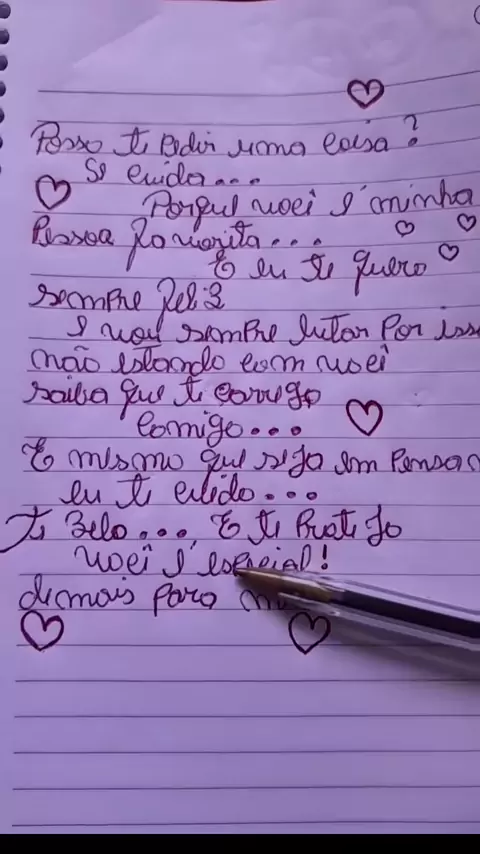 Posso te pedir uma coisa?
Se cuida...
Porque você é minha
Pessoa favorita...
E eu te quero
sempre feliz
E vou sempre lutar por isso
não estando com você
saiba que te carrego
comigo...
E mesmo que seja em
eu te cuido...
te zelo... E te Protejo
você é especial!
demais para